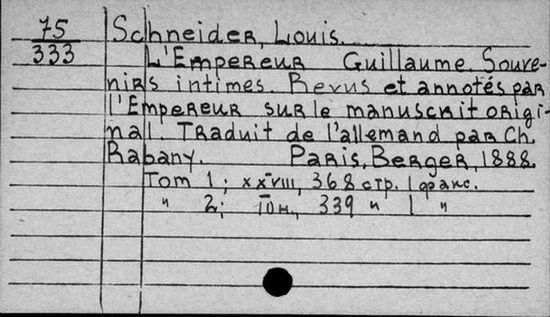 75
333
Schneider, Louis.
L'Empereur Guillaume. Souve-
nirs intimes. Revus et annotés par
l'Empereur sur le manuscrit origi-
nal. Traduit de l'allemand par Ch.
Rabany. Paris, Berger, 1888.
Том 1; XXVIII, 368 стр. 1 факс.
" 2; 339 " 1 "